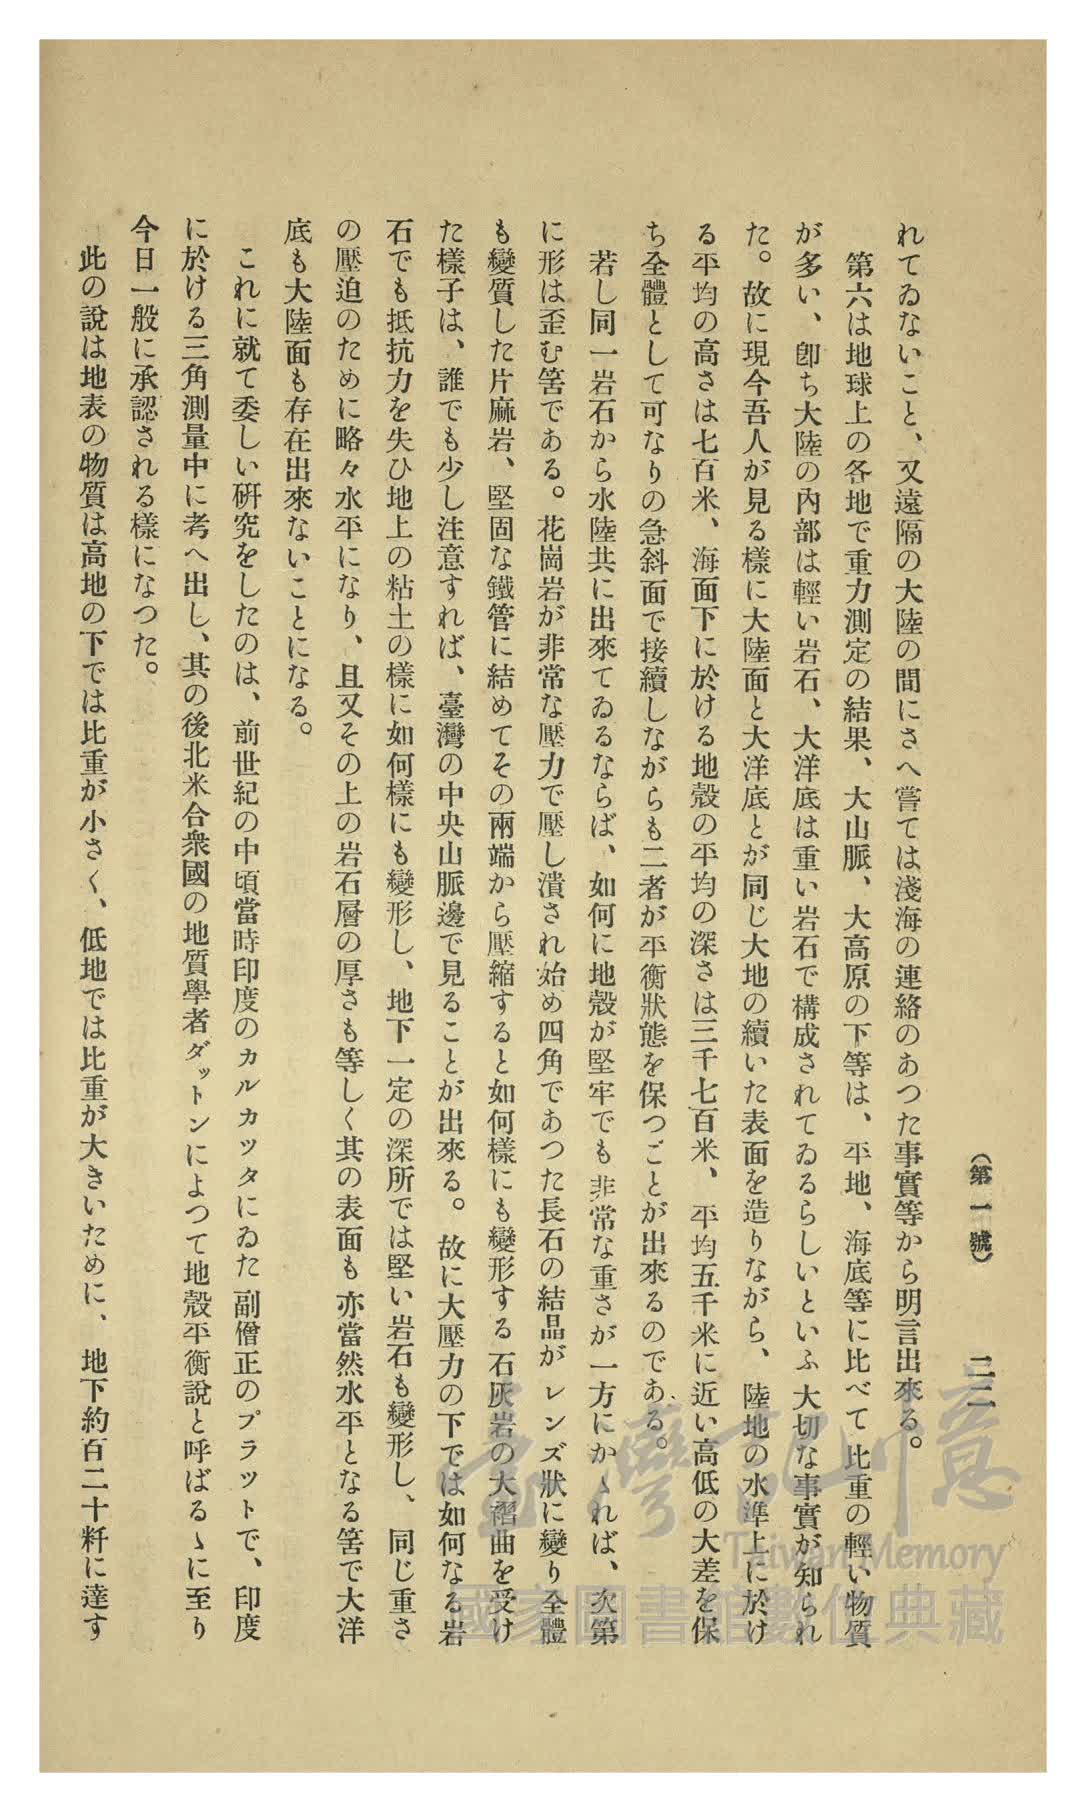 (第一號)
二二
れてゐないこと、又遠隔の大陸の間にさへ嘗ては淺海の連絡のあつた事實等から明言出來る。
第六は地球上の各地で重力測定の結果、大山脈、大高原の下等は、平地、海底等に比べて比重の輕い物質
が多い、卽ち大陸の內部は輕い岩石、大洋底は重い岩石で構成されてゐるらしいといふ大切な事實が知られ
た。故に現今吾人が見る樣に大陸面と大洋底とが同じ大地の續いた表面を造りながら、陸地の水準上に於け
る平均の高さは七百米、海面下に於ける地殼の平均の深さは三千七百米、平均五千米に近い高低の大差を保
ち全體として可なりの急斜面で接續しながらも二者が平衡狀態を保つことが出來るのである。
若し同一岩石から水陸共に出來てゐるならば、如何に地殼が堅牢でも非常な重さが一方にかゝれば、次第
に形は歪む筈である。花崗岩が非常な壓力で壓し潰され始め四角であつた長石の結晶がレンズ狀に變り全體
も變質した片麻岩、堅固な鐵管に結めてその兩端から壓縮すると如何樣にも變形する石灰岩の大褶曲を受け
た樣子は、誰でも少し注意すれば、臺灣の中央山脈邊で見ることが出來る。故に大壓力の下では如何なる岩
石でも抵抗力を失ひ地上の粘土の樣に如何樣にも變形し、地下一定の深所では堅い岩石も變形し、同じ重さ
の壓迫のために略々水平になり、且又その上の岩石層の厚さも等しく其の表面も亦當然水平となる筈で大洋
底も大陸面も存在出來ないことになる。
これに就て委しい硏究をしたのは、前世紀の中頃當時印度のカルカッタにゐた副僧正のプラットで、印度
に於ける三角測量中に考へ出し、其の後北米合衆國の地質學者ダットンによつて地殼平衡說と呼ばるゝに至り
今日一般に承認される樣になつた。
此の說は地表の物質は高地の下では比重が小さく、低地では比重が大きいために、地下約百二十粁に達す
臺灣記憶
Taiwan Memory
國家圖書館數位典藏